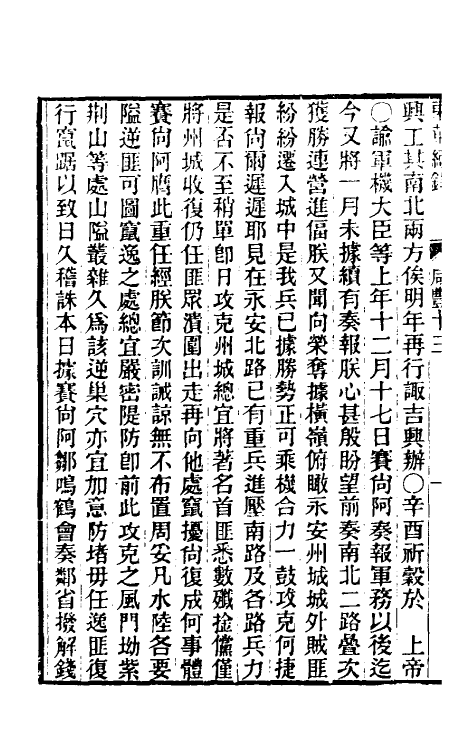 東華續錄　咸豐十三
興工其南北兩方俟明年再行諏吉興辦〇辛酉祈穀於　上帝
〇諭軍機大臣等上年十二月十七日賽尙阿奏報軍務以後迄
今又將一月未據續有奏報朕心甚殷盼望前奏南北二路疊次
獲勝連營進偪朕又聞向榮奪據橫嶺俯瞰永安州城城外賊匪
紛紛遷入城中是我兵已據勝勢正可乘機合力一鼓攻克何捷
報尙爾遲遲耶見在永安北路已有重兵進壓南路及各路兵力
是否不至稍單卽日攻克州城總宜將著名首匪悉數殲捡儻僅
將州城收復仍任匪眾潰圍出走再向他處竄擾尙復成何事體
賽尙阿膺此重任經朕節次訓誡諒無不布置周妥凡水陸各要
隘逆匪可圖竄逸之處總宜嚴密隄防卽前此攻克之風門坳紫
荆山等處山隘叢雜久爲該逆巢穴亦宜加意防堵毋任逸匪復
行竄踞以致日久稽誅本日據賽尙阿鄒鳴鶴會奏鄰省撥解錢